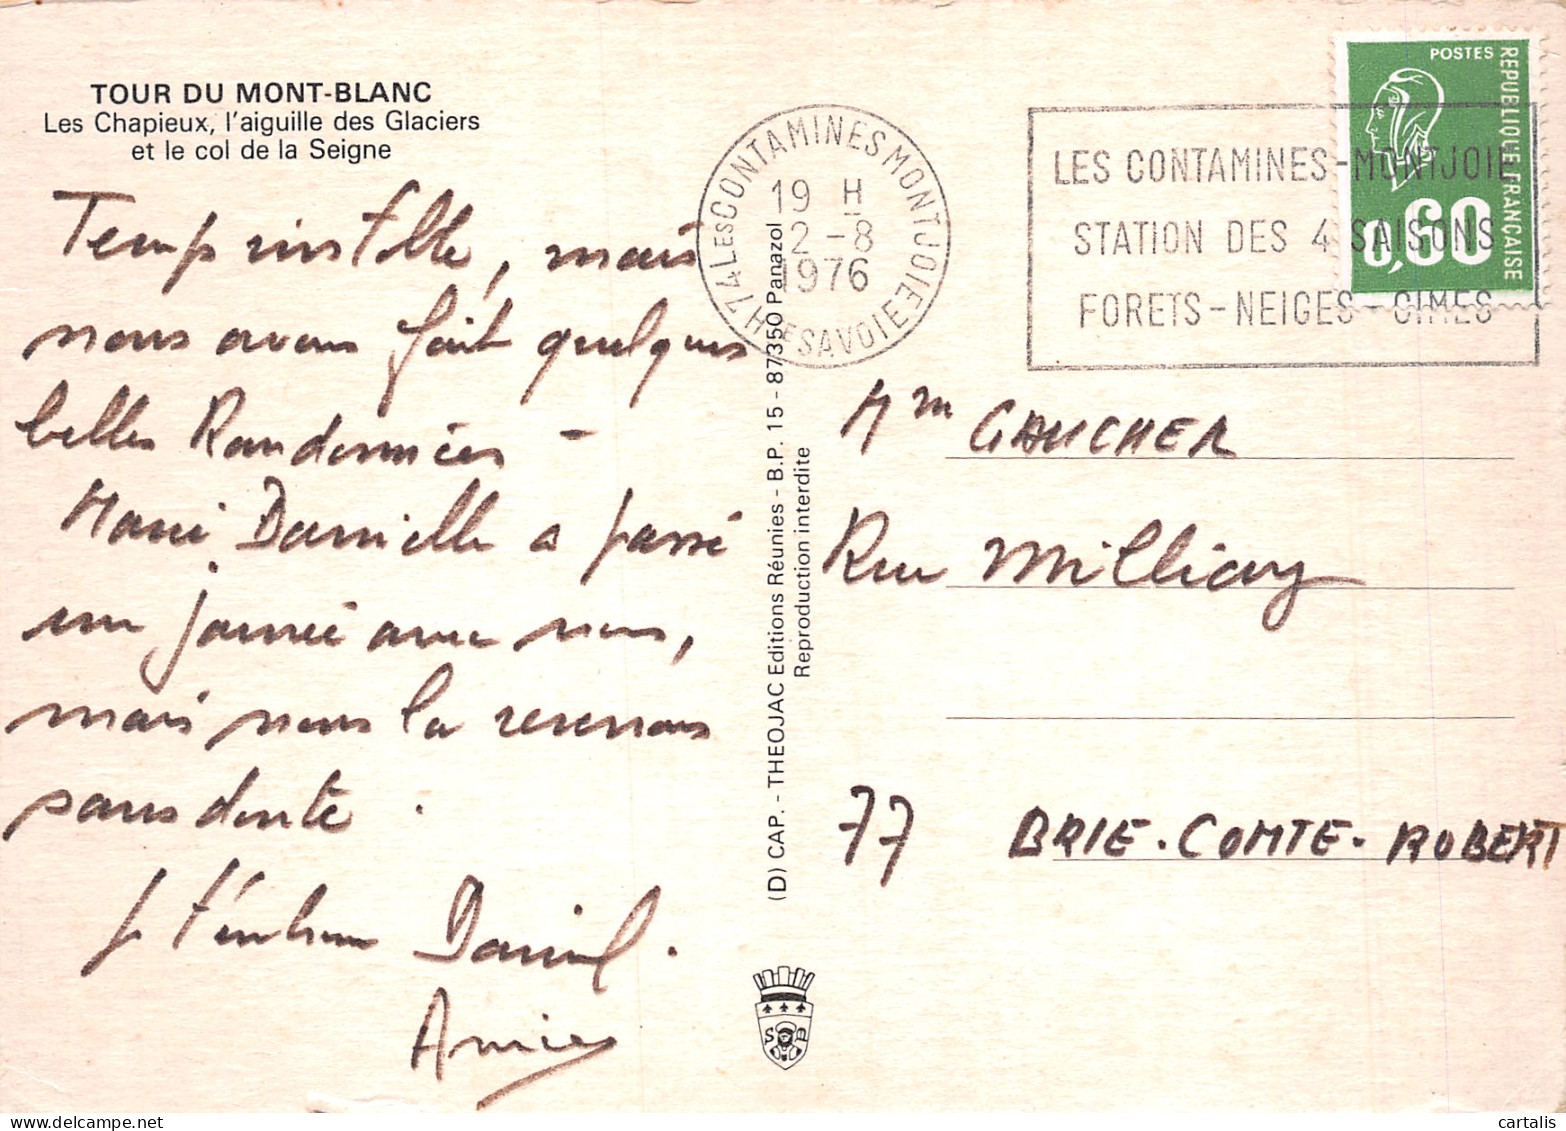 TOUR DU MONT-BLANC
Les Chapieux, l'aiguille des Glaciers
et le col de la Seigne
Temps instable, mais
nous avons fait quelques
belles Randonnées -
Marie Danielle a passé
une journée avec nous,
mais nous la reverrons
sans doute .
Je t'embrasse Daniel .
74 LES CONTAMINES MONTJOIE
HTE SAVOIE
19 H
2 - 8
1976
LES CONTAMINES-MONTJOIE
STATION DES 4 SAISONS
FORETS-NEIGES-CIMES
POSTES
REPUBLIQUE FRANÇAISE
0,60
(D) CAP. - THEOJAC Editions Réunies - B.P. 15 - 87350 Panazol
Reproduction interdite
Mme GAUCHER
Rue
77 BRIE-COMTE-ROBERT
cartalis